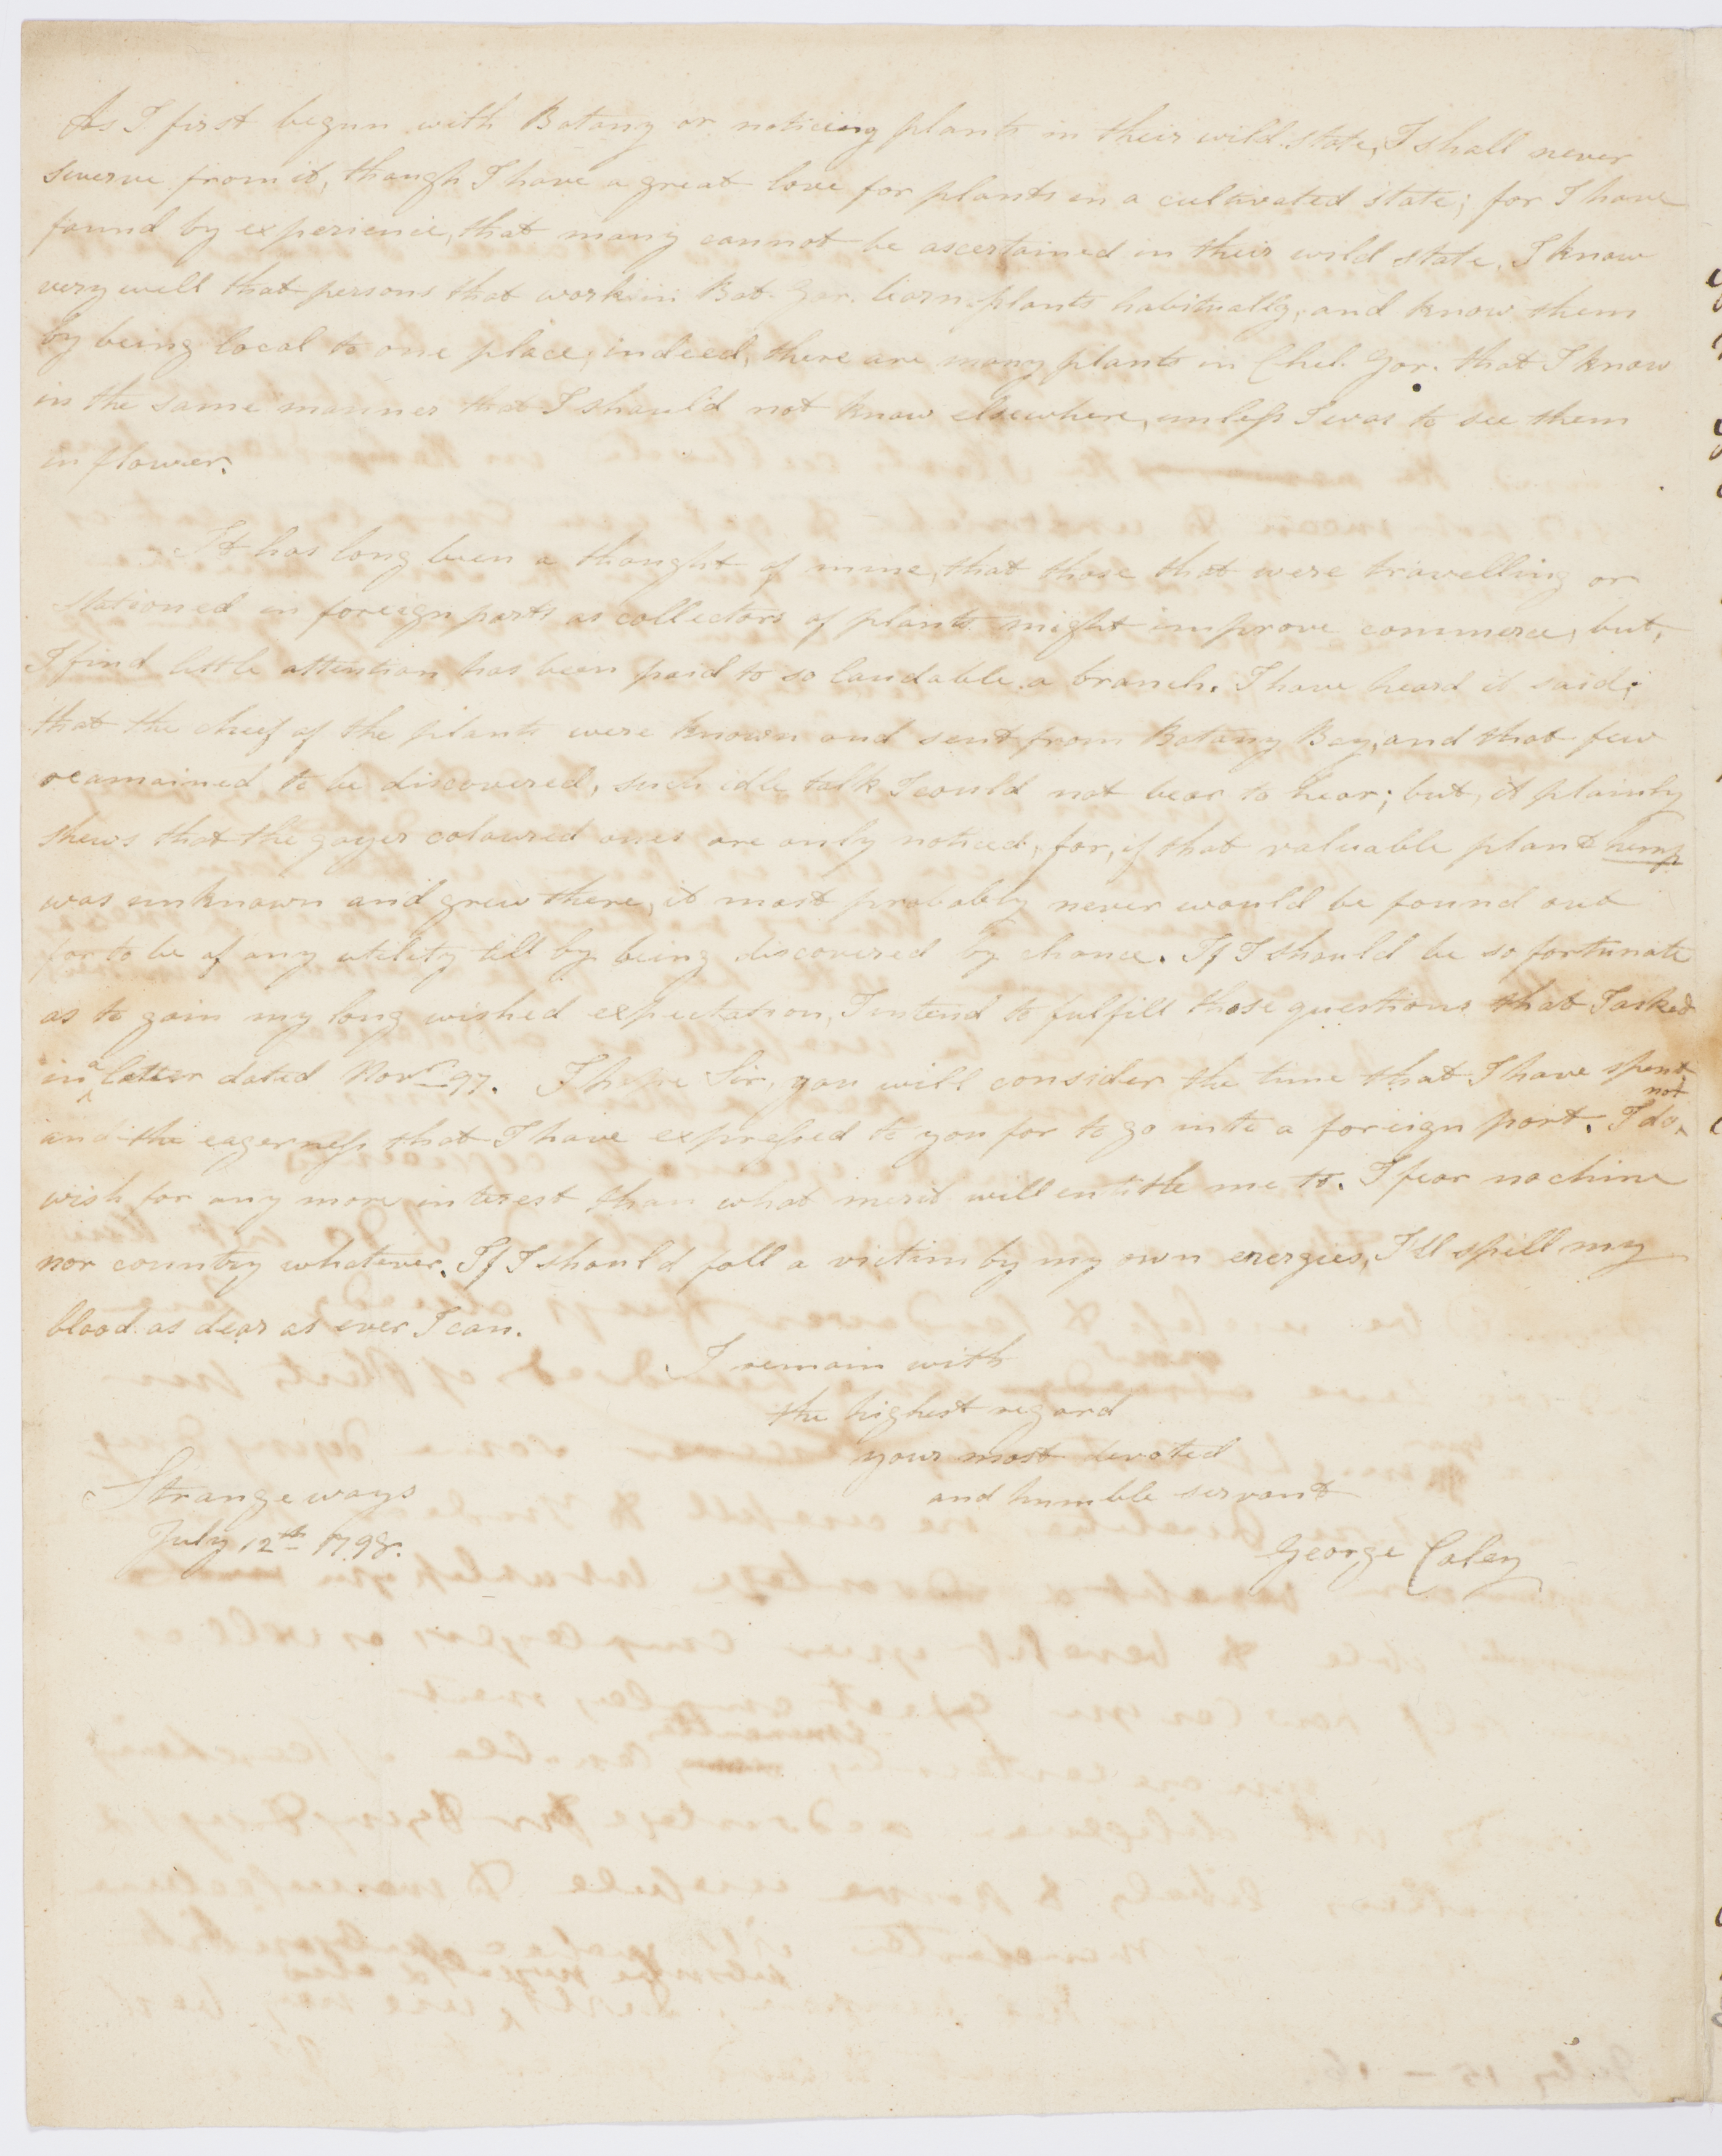 As I first begun with Botany or noticing plants in their wild state, I shall never
swerve from it, though I have a great love for plants in a cultivated state; for I have
found by experience, that many cannot be ascertained in their wild state. I know
very well that persons that work in Bot. Gar. learn plants habitually, and know them
by being local to one place; indeed, there are many plants in Chel. Gar. that I know
in the same manner that I should not know elsewhere, unless I was to see them
in flower.
It has long been a thought of mine, that those that were travelling or
stationed in foreign parts as collectors of plants might improve commerce, but,
I find little attention has been paid to so laudable a branch. I have heard it said;
that the cheef of the plants were known and sent from Botany Bay, and that few
reamained to be discovered, such idle talk I could not bear to hear; but, it plainly
shews that the gayer coloured ones are only noticed, for, if that valuable plant hemp
was unknown and grew there, it most probably never would be found out
for to be of any utility till by being discovered by chance. If I should be so fortunate
as to gain my long wished expectation, I intend to fulfill those questions that I asked
in a letter dated Novr 97. I hope Sir, you will consider the time that I have spent
and the eagerness that I have expressed to you for to go into a foreign part. I do not
wish for any more interest than what merit will entitle me to. I fear no clime
nor country whatever. If I should fall a victim by my own energies, I'll spill my
blood as dear as ever I can.
I remain with
the highest regard
your most devoted
and humble servant
George Caley
Strangeways
July 12th 1798.